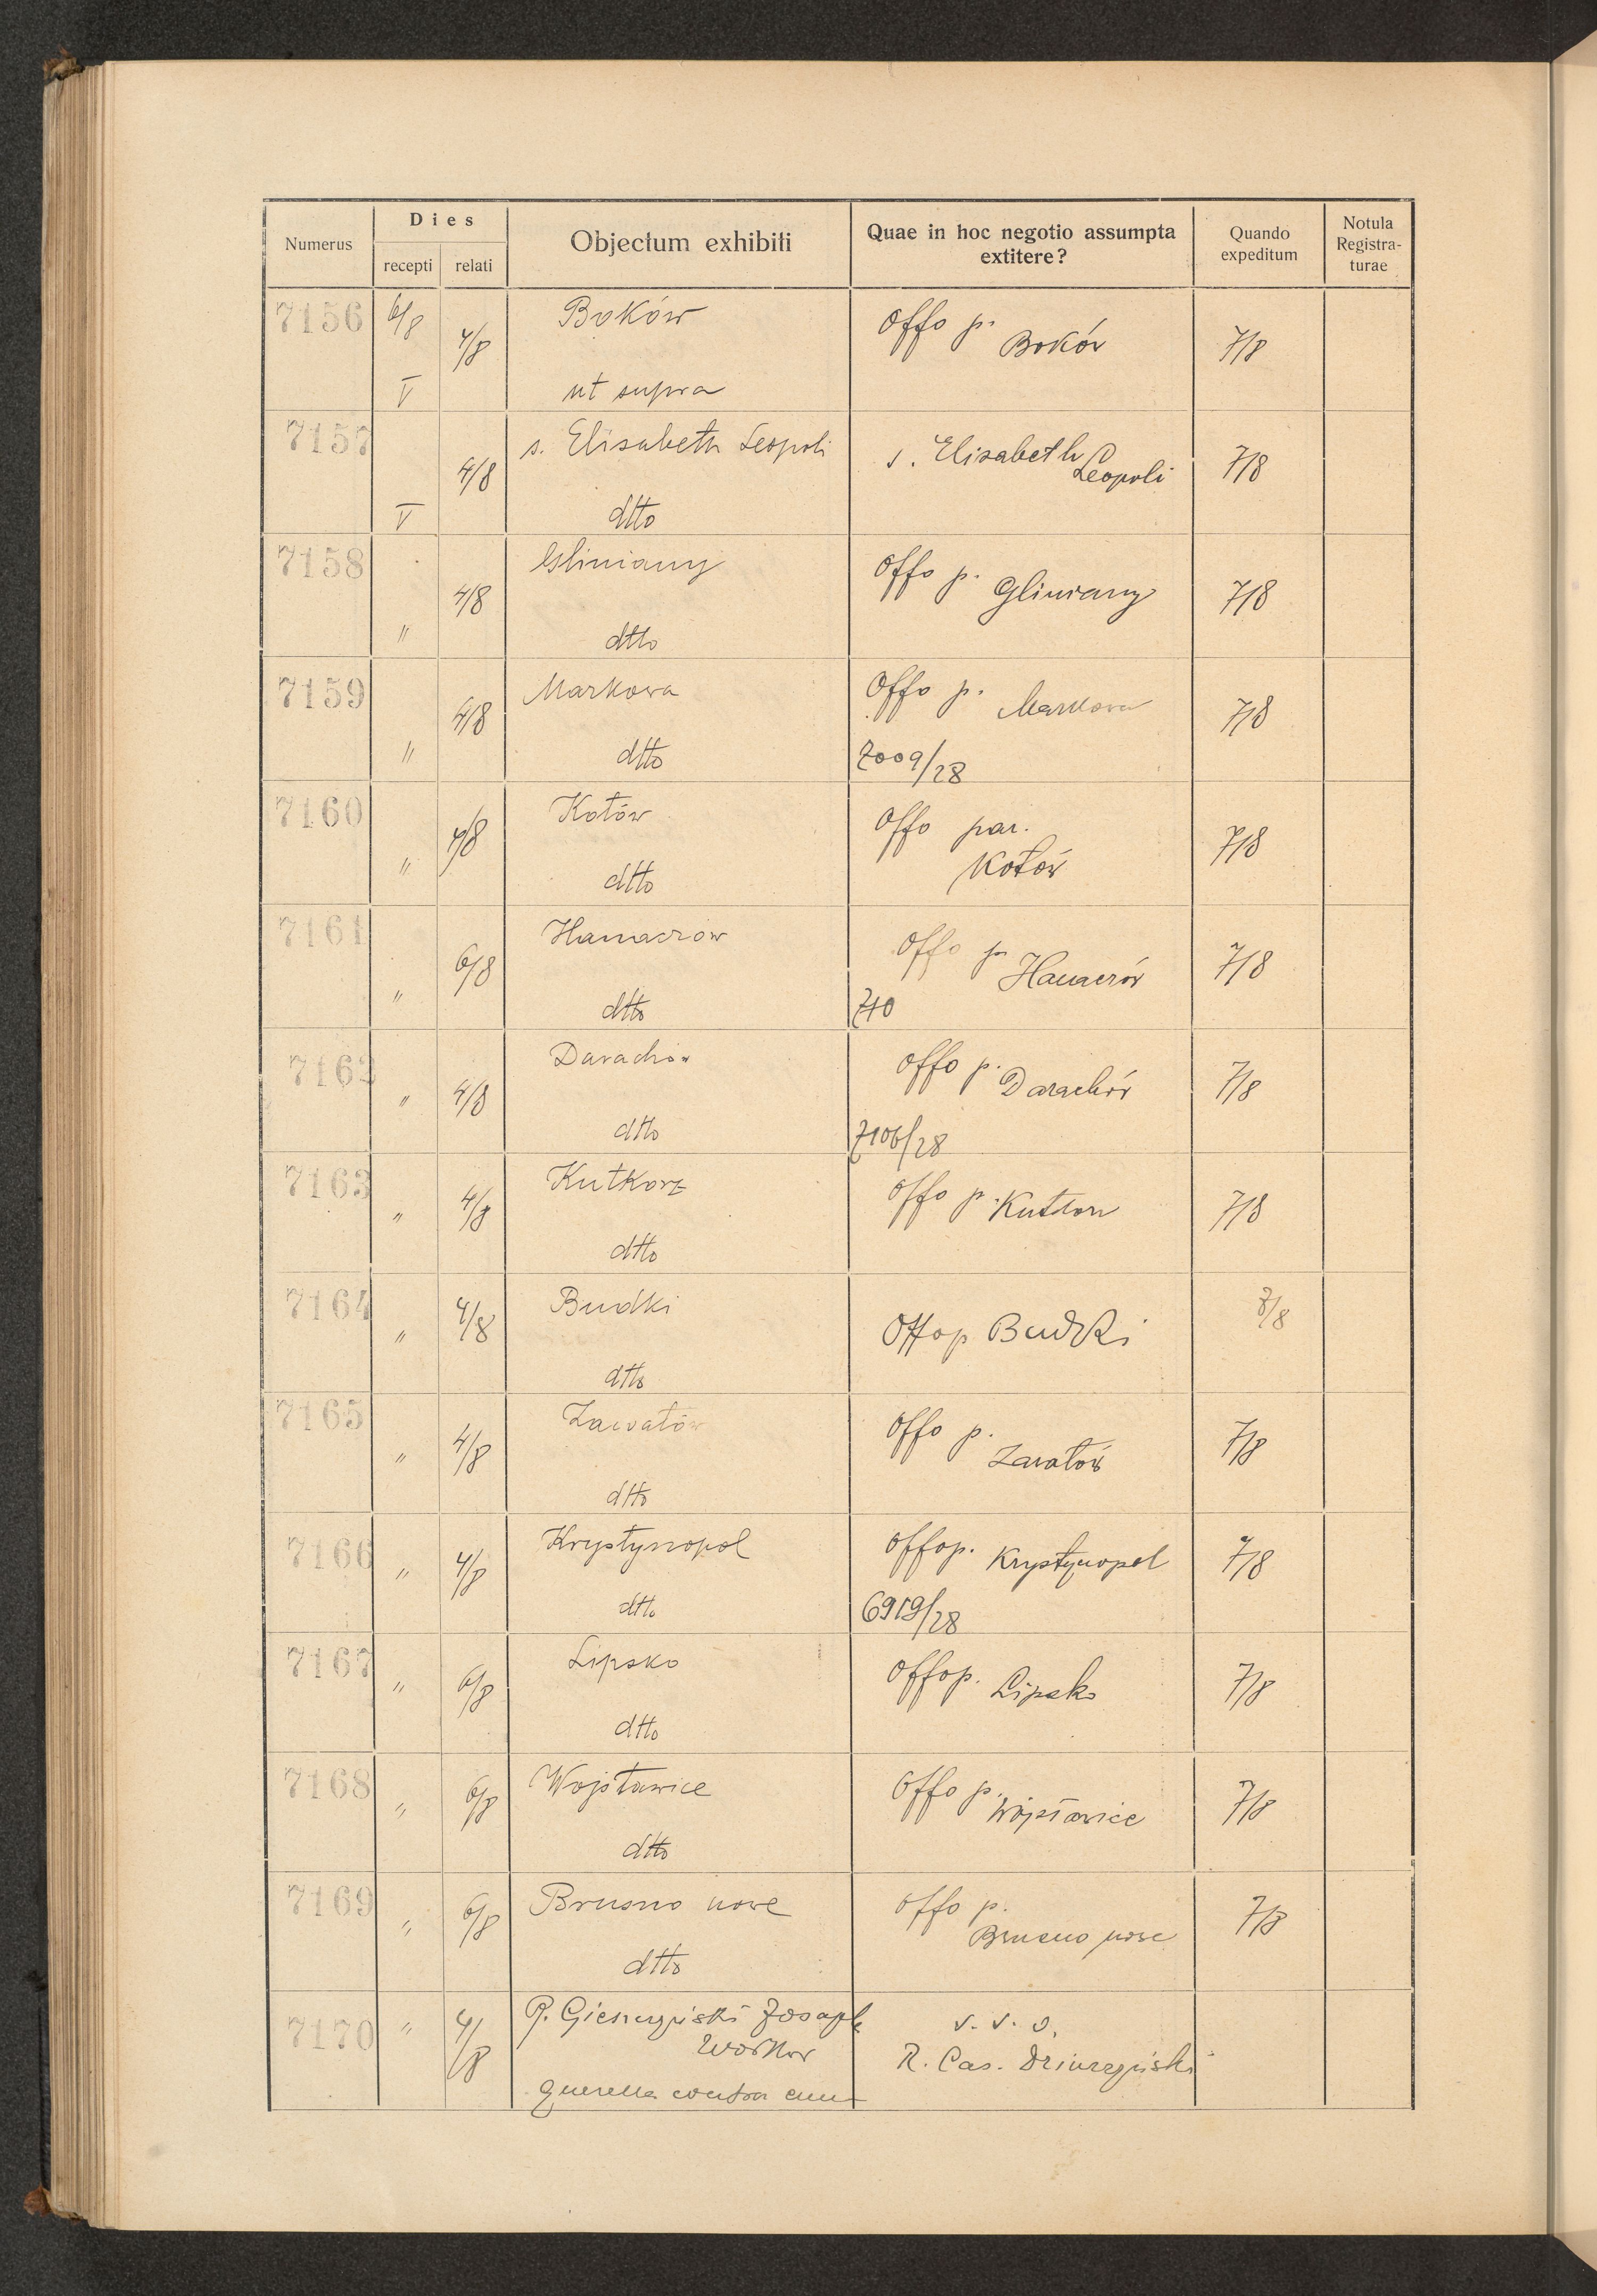 Numerus Dies Objectum exhibiti Quae in hoc negotio assumpta extitere? Quando expeditum Notula Registra-turae
recepti relati
7156 6/8 4/8 Boków Offo p. Boków 7/8
V ut supra
7157 4/8 s. Elisabeth Leopoli s. Elisabeth Leopoli 7/8
V dtto
7158 4/8 Gliniany Offo p. Gliniany 7/8
" dtto
7159 4/8 Markowa Offo p. Markowa 7/8
" dtto 7009/28
7160 4/8 Kotów Offo par. Kotów 7/8
" dtto
7161 6/8 Hanaczów Offo p. Hanaczów 7/8
" dtto 710
7162 " 4/8 Darachów Offo p. Darachów 7/8
dtto 7106/28
7163 " 4/8 Kutkorz Offo p. 7/8
dtto
7164 " 4/8 Budki Offop Budki 7/8
dtto
7165 " 4/8 Zawałów Offo p. Zawałów 7/8
dtto
7166 " 4/8 Krystynopol Offop. Krystynopol 7/8
dtto 6919/28
7167 " 6/8 Lipsko Offop. Lipsko 7/8
dtto
7168 " 6/8 Wojsławice Offo p. Wojsławice 7/8
dtto
7169 " 6/8 Brusno nowe Offo p. Brusno nowe 7/8
dtto
7170 " 4/8 Josaph v. s. o.
R. Cas.
querella contra eum